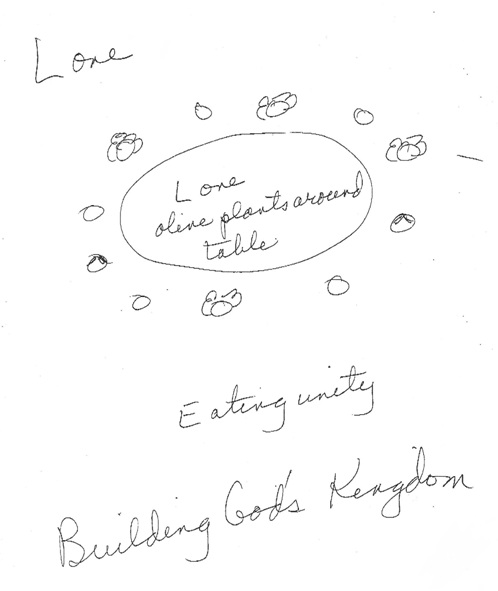 Love
Love
olive plants around
table
Eating unity
Building God's Kingdom